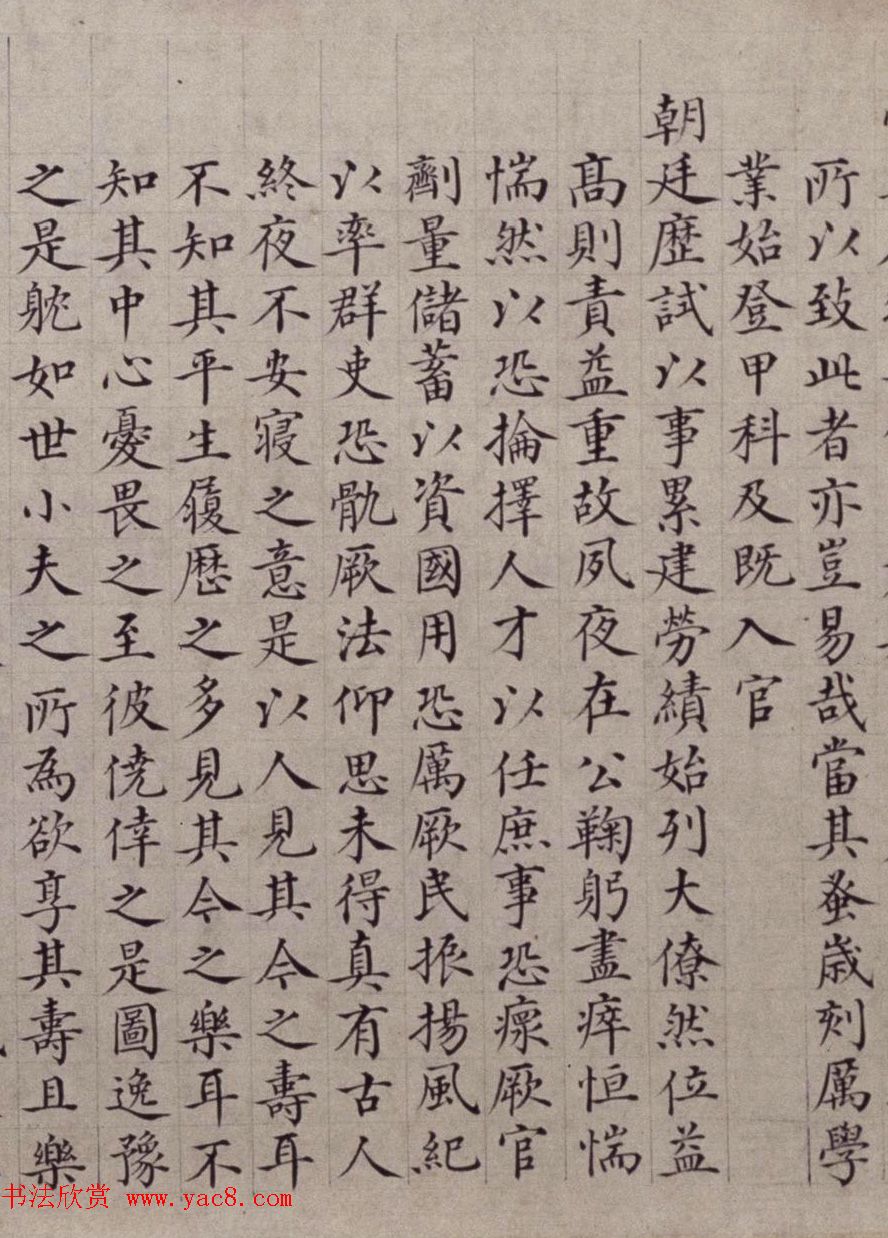 所以致此者亦豈易哉當其蚤歲刻厲學
業始登甲科及既入官
朝廷歷試以事累建勞績始列大僚然位益
高則責益重故夙夜在公鞠躬盡瘁恒惴
惴然以恐掄擇人才以任庶事恐瘝厥官
劑量儲蓄以資國用恐厲厥民振揚風紀
以率群吏恐骫厥法仰思未得真有古人
終夜不安寢之意是以人見其今之壽耳
不知其平生履歷之多見其今之樂耳不
知其中心憂畏之至彼僥倖之是圖逸豫
之是躭如世小夫之所為欲享其壽且樂
书法欣赏 www.yac8.com